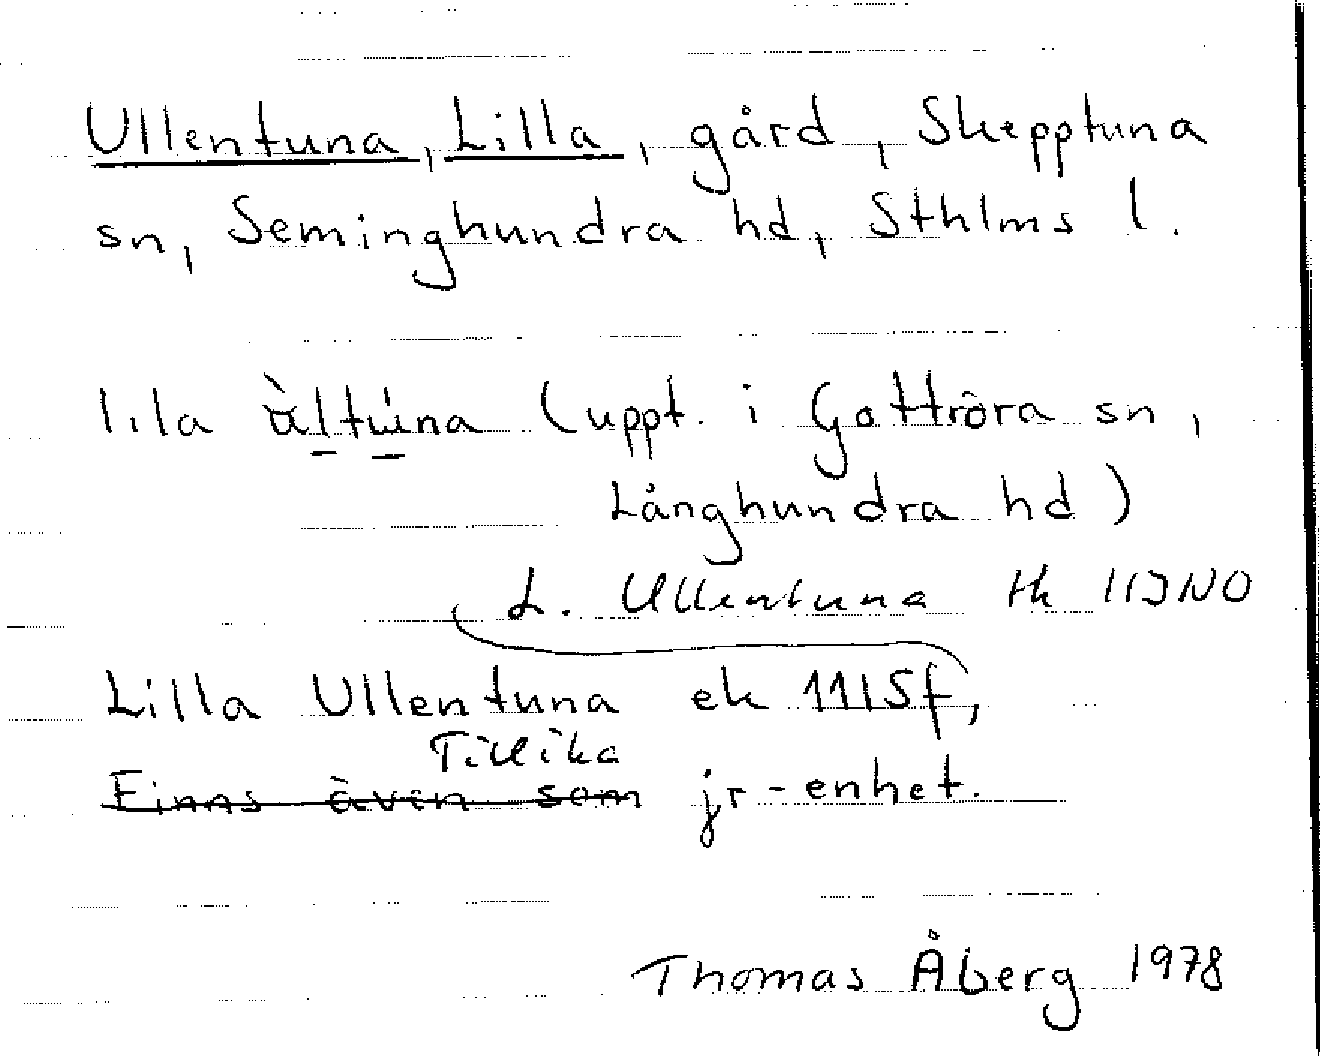 Ullentuna, Lilla, gård, Skepptuna
sn, Seminghundra hd, Sthlms l.
lila àltúna (uppt. i Gottröra sn,
Långhundra hd)
L. Ullentuna tk 11J NO
Lilla Ullentuna ek 11I5f,
Tillika
Finns även som jr-enhet.
Thomas Åberg 1978